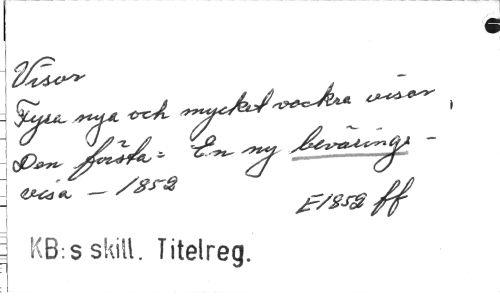 Visor
Fyra nya och mycket vackra visor,
Den första: En ny bevärings-
visa – 1852
E1852 ff
KB:s skill. Titelreg.